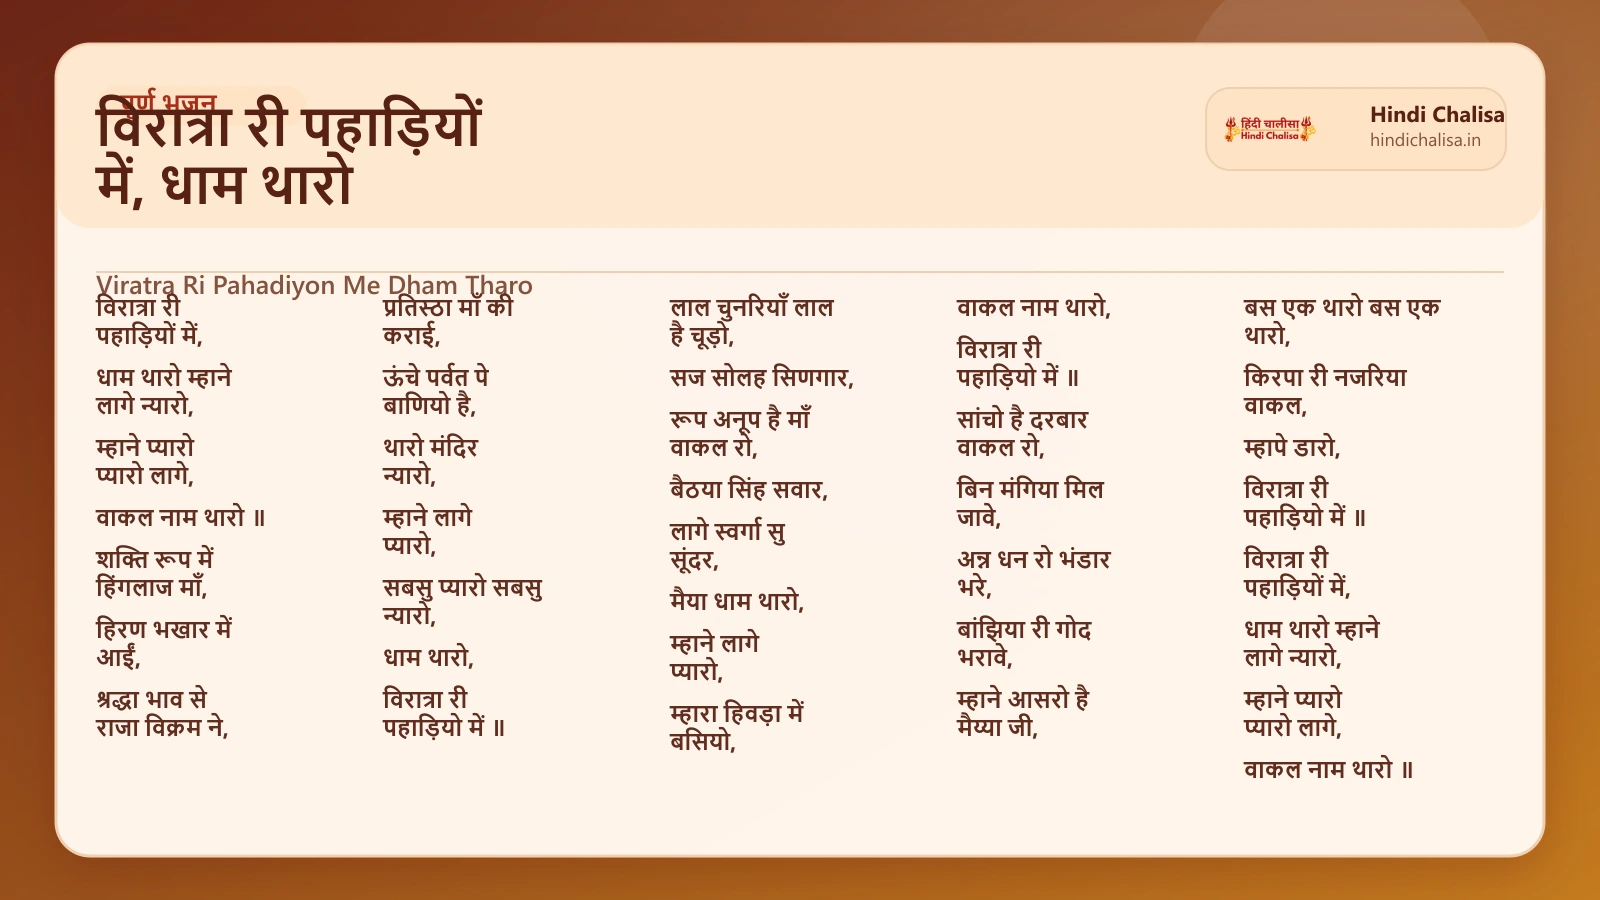 पूर्ण भजन
विरात्रा री पहाड़ियों
में, धाम थारो
हिंदी चालीसा
Hindi Chalisa
Hindi Chalisa
hindichalisa.in
Viratra Ri Pahadiyon Me Dham Tharo
विरात्रा री
पहाड़ियों में,
धाम थारो म्हाने
लागे न्यारो,
म्हाने प्यारो
प्यारो लागे,
वाकल नाम थारो ॥
शक्ति रूप में
हिंगलाज माँ,
हिरण भखार में
आईं,
श्रद्धा भाव से
राजा विक्रम ने,
प्रतिस्ठा माँ की
कराई,
ऊंचे पर्वत पे
बाणियो है,
थारो मंदिर
न्यारो,
म्हाने लागे
प्यारो,
सबसु प्यारो सबसु
न्यारो,
धाम थारो,
विरात्रा री
पहाड़ियो में ॥
लाल चुनरियाँ लाल
है चूड़ो,
सज सोलह सिणगार,
रूप अनूप है माँ
वाकल रो,
बैठया सिंह सवार,
लागे स्वर्गा सु
सूंदर,
मैया धाम थारो,
म्हाने लागे
प्यारो,
म्हारा हिवड़ा में
बसियो,
वाकल नाम थारो,
विरात्रा री
पहाड़ियो में ॥
सांचो है दरबार
वाकल रो,
बिन मंगिया मिल
जावे,
अन्न धन रो भंडार
भरे,
बांझिया री गोद
भरावे,
म्हाने आसरो है
मैय्या जी,
बस एक थारो बस एक
थारो,
किरपा री नजरिया
वाकल,
म्हापे डारो,
विरात्रा री
पहाड़ियो में ॥
विरात्रा री
पहाड़ियों में,
धाम थारो म्हाने
लागे न्यारो,
म्हाने प्यारो
प्यारो लागे,
वाकल नाम थारो ॥